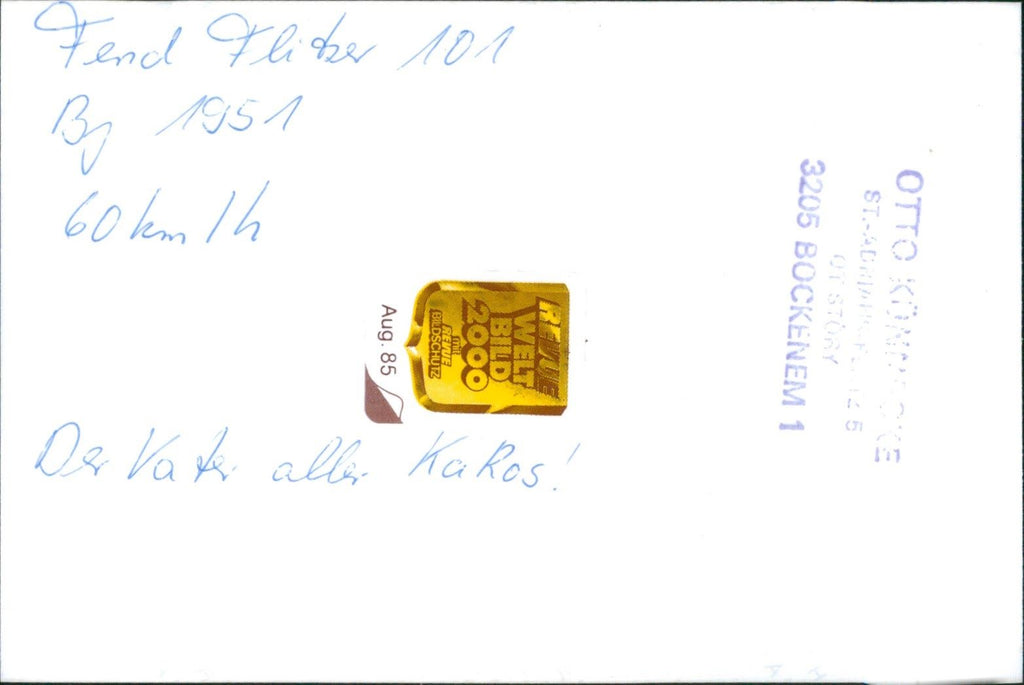 Fend Flitzer 101
Bj 1951
60 km/h
REVUE
WELT
BILD
2000
mit
REVUE
BILDSCHUTZ
Aug. 85
Der Vater aller KaRos!
OTTO
OT STÖRY
3205 BOCKENEM 1